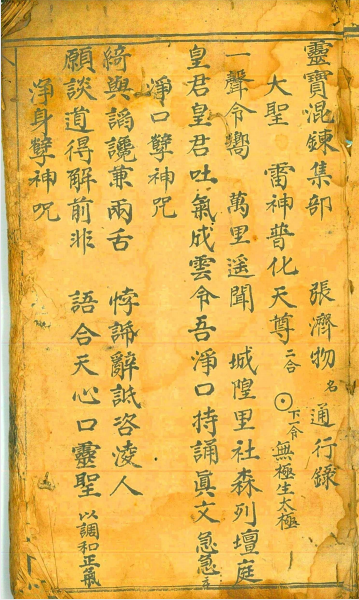 靈寶混鍊集部 張濟物名通行錄
大聖 雷神普化天尊二合 下一令無極生太極
一聲令響 萬里遥聞 城隍里社森列壇庭
皇君皇君吐氣成雲令吾淨口持誦眞文急急
淨口孽神咒
綺與謟讒兼兩舌 悖諦辭詆咨凌人
願談道得解前非 語合天心口靈聖以調和正氣
淨身孽神咒